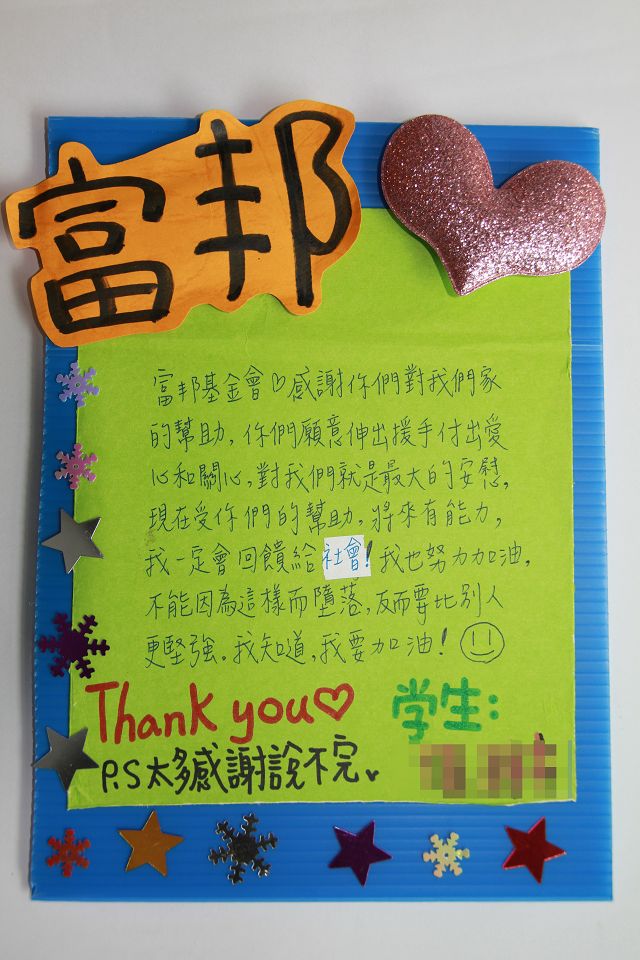 富邦
富邦基金會♡感謝你們對我們家
的幫助,你們願意伸出援手付出愛
心和關心,對我們就是最大的安慰,
現在受你們的幫助,將來有能力,
我一定會回饋給社會!我也努力加油,
不能因為這樣而墮落,反而要比別人
更堅強。我知道,我要加油!
Thank you♡
学生:
P.S太多感謝說不完